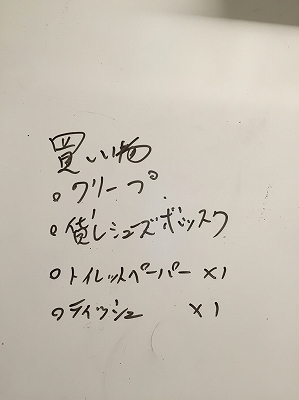 買い物
○クリープ
○貸しシューズボックス
○トイレットペーパー ×1
○ティッシュ ×1